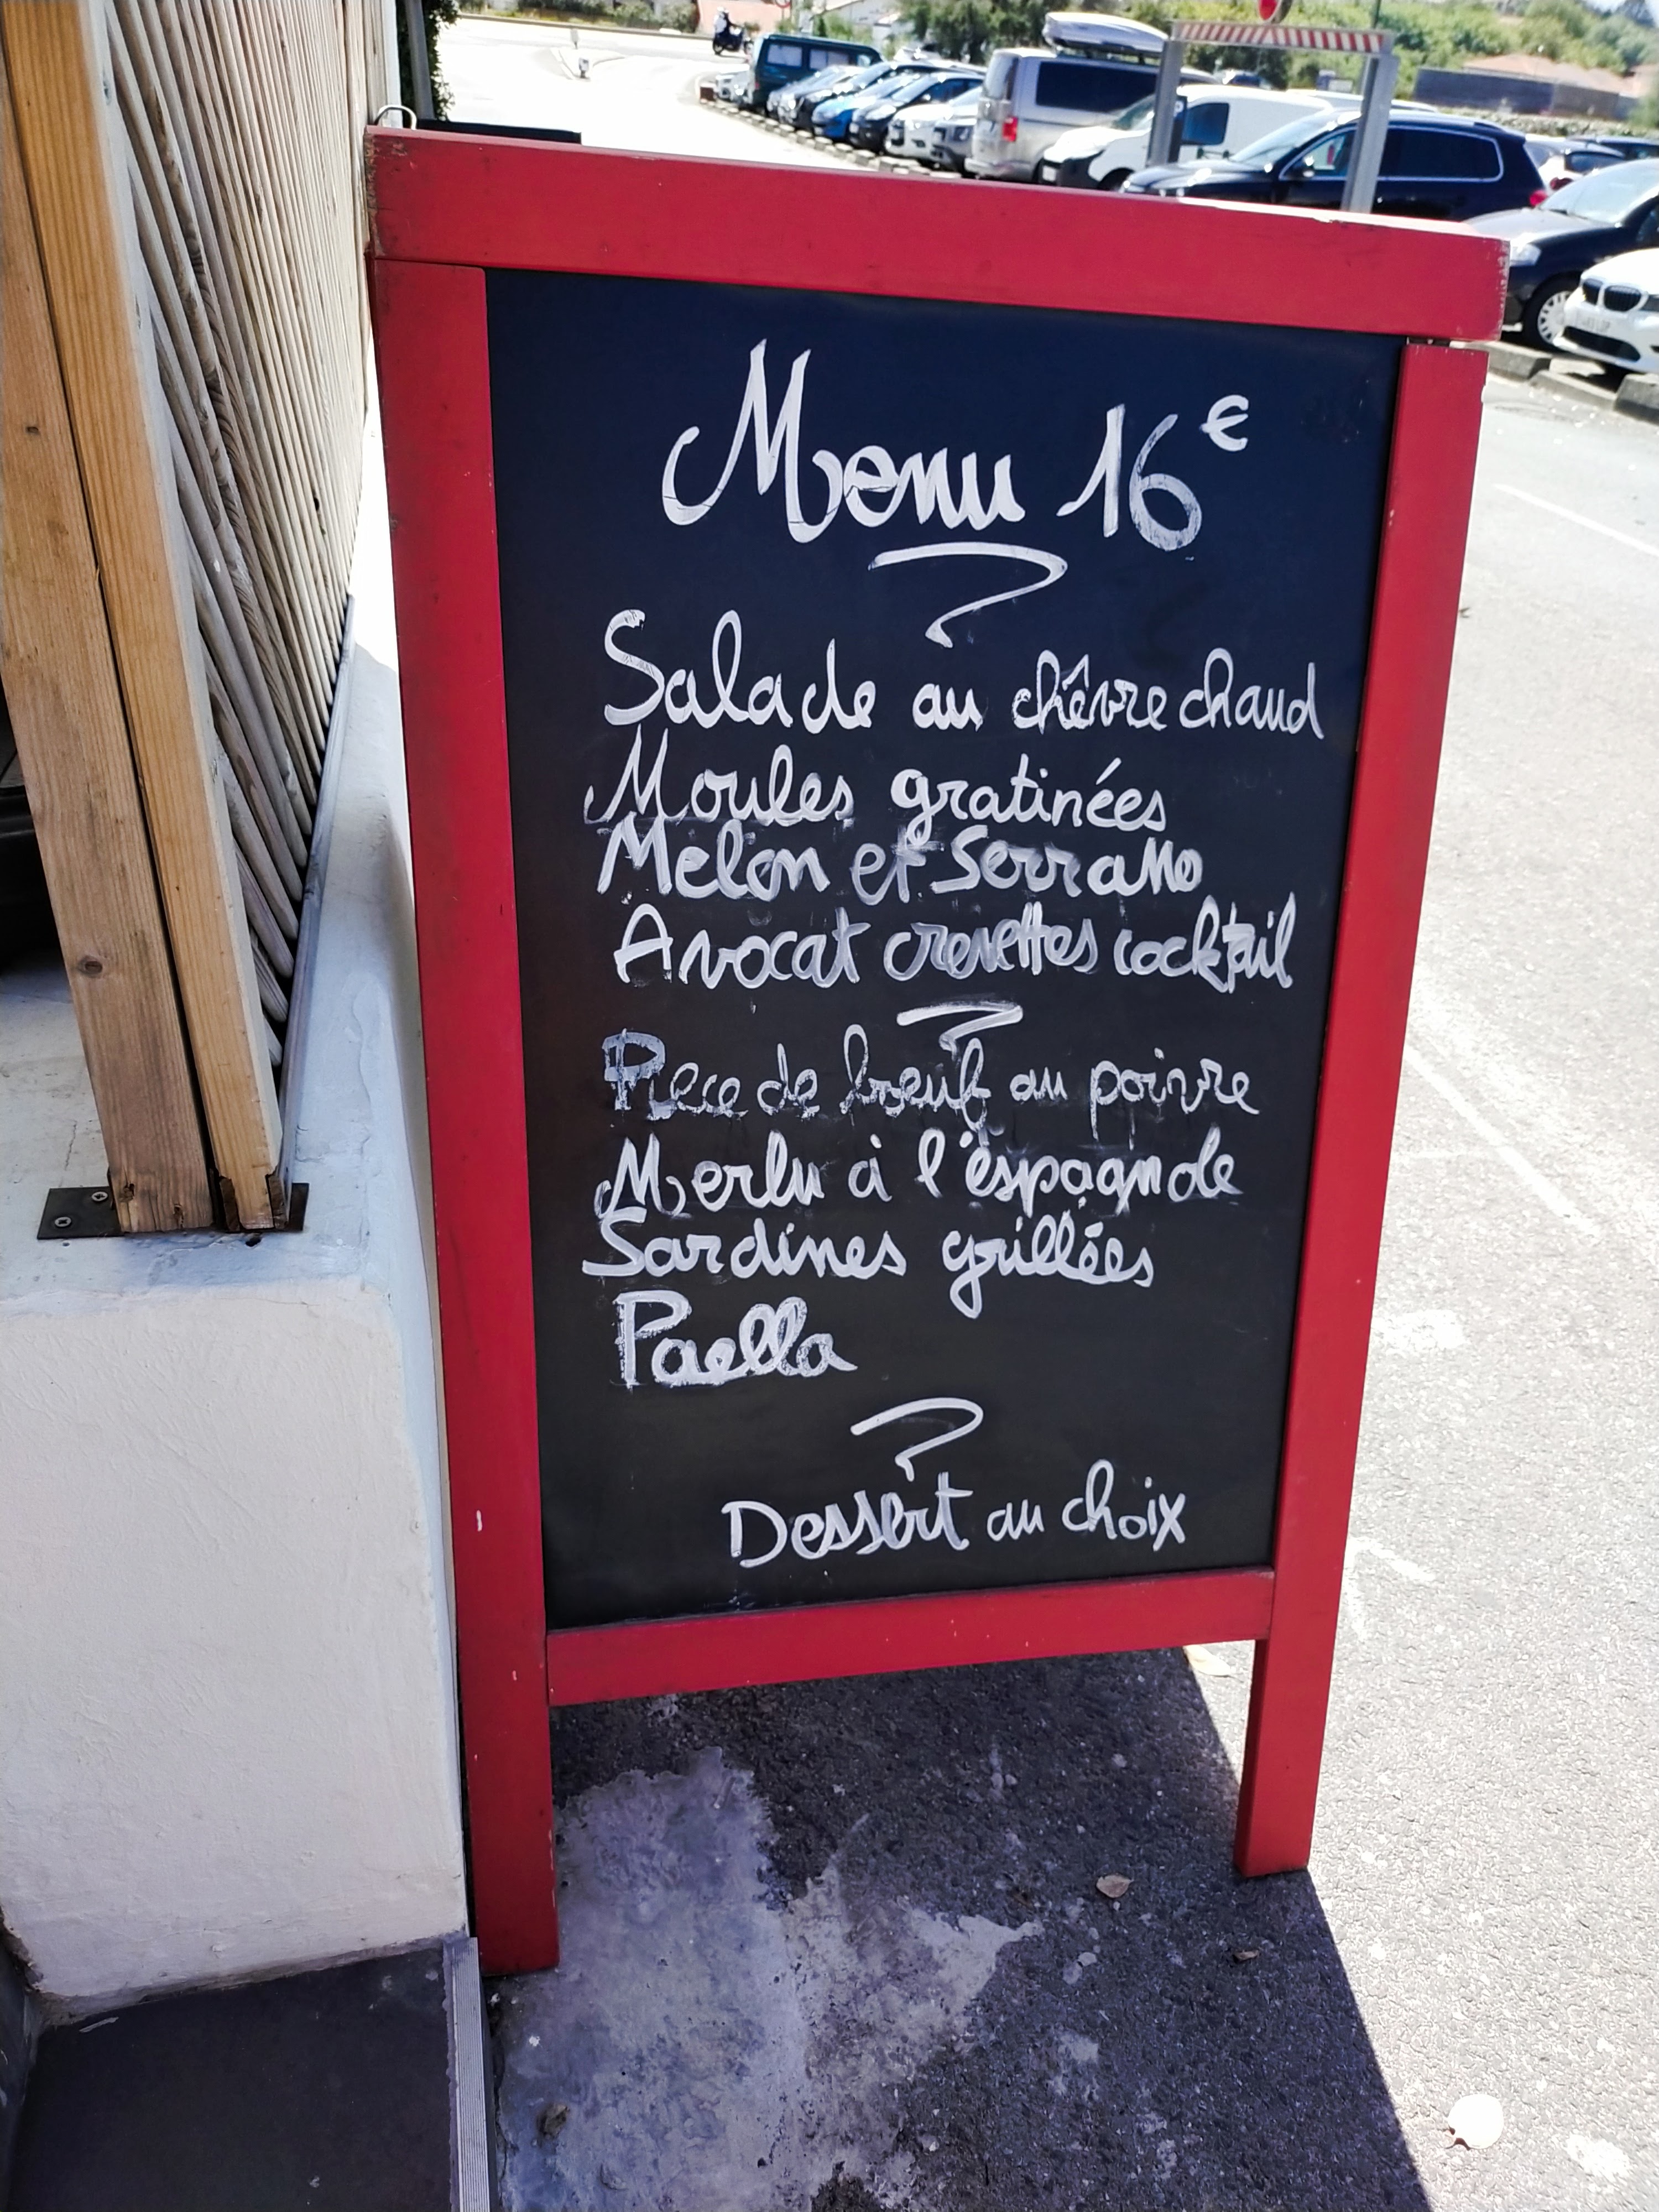 Menu 16€
Salade au chêvre chaud
Moules gratinées
Melon et Serrano
Avocat crevettes cocktail
Piece de boeuf au poivre
Merlu à l'éspagnole
Sardines grillées
Paella
Dessert au choix